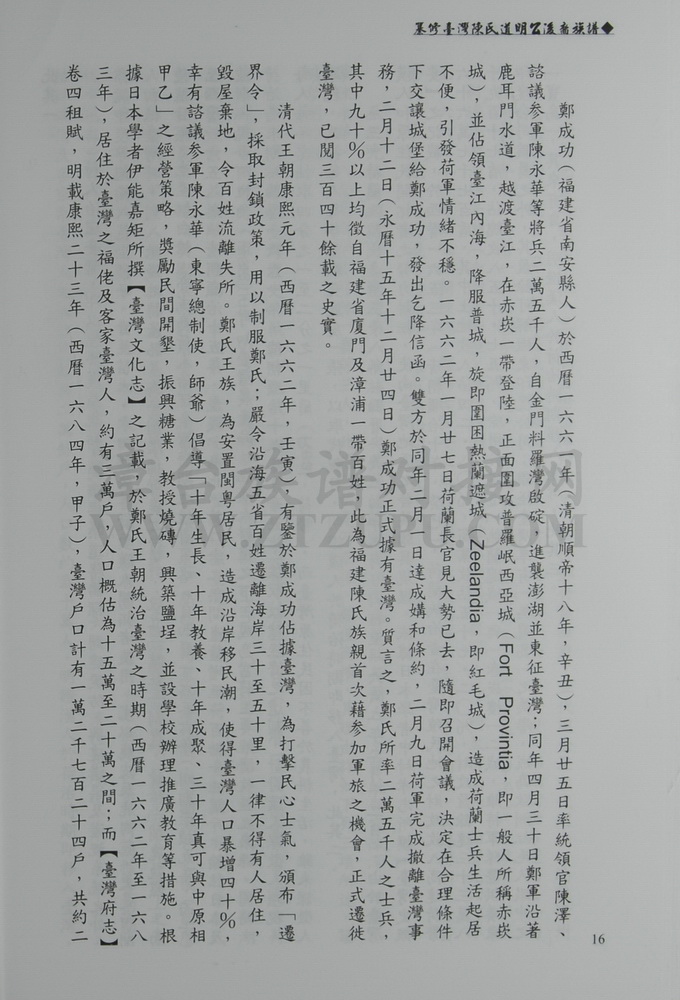 纂修臺灣陳氏道明公派裔族譜◆
鄭成功（福建省南安縣人）於西曆一六六一年（清朝順帝十八年，辛丑），三月廿五日率統領官陳澤、
諮議參軍陳永華等將兵二萬五千人，自金門料羅灣啟碇，進襲澎湖並東征臺灣；同年四月三十日鄭軍沿著
鹿耳門水道，越渡臺江，在赤崁一帶登陸，正面圍攻普羅岷西亞城（Fort Provintia，即一般人所稱赤崁
城），並佔領臺江內海，降服普城，旋即圍困熱蘭遮城（Zeelandia，即紅毛城），造成荷蘭士兵生活起居
不便，引發荷軍情緒不穩。一六六二年一月廿七日荷蘭長官見大勢已去，隨即召開會議，決定在合理條件
下交讓城堡給鄭成功，發出乞降信函。雙方於同年二月一日達成媾和條約，二月九日荷軍完成撤離臺灣事
務，二月十二日（永曆十五年十二月廿四日）鄭成功正式據有臺灣。質言之，鄭氏所率二萬五千人之士兵，
其中九十%以上均徵自福建省廈門及漳浦一帶百姓，此為福建陳氏族親首次藉參加軍旅之機會，正式遷徙
臺灣，已閱三百四十餘載之史實。
清代王朝康熙元年（西曆一六六二年，壬寅），有鑒於鄭成功佔據臺灣，為打擊民心士氣，頒布「遷
界令」，採取封鎖政策，用以制服鄭氏；嚴令沿海五省百姓遷離海岸三十至五十里，一律不得有人居住，
毀屋棄地，令百姓流離失所。鄭氏王族，為安置閩粵居民，造成沿岸移民潮，使得臺灣人口暴增四十%，
幸有諮議參軍陳永華（東寧總制使，師爺）倡導「十年生長、十年教養、十年成聚、三十年真可與中原相
甲乙」之經營策略，獎勵民間開墾，振興糖業，教授燒磚，興築鹽埕，並設學校辦理推廣教育等措施。根
據日本學者伊能嘉矩所撰【臺灣文化志】之記載，於鄭氏王朝統治臺灣之時期（西曆一六六二年至一六八
三年），居住於臺灣之福佬及客家臺灣人，約有三萬戶，人口概估為十五萬至二十萬之間；而【臺灣府志】
卷四租賦，明載康熙二十三年（西曆一六八四年，甲子），臺灣戶口計有一萬二千七百二十四戶，共約二
16
WWW.ZTZUPU.COM